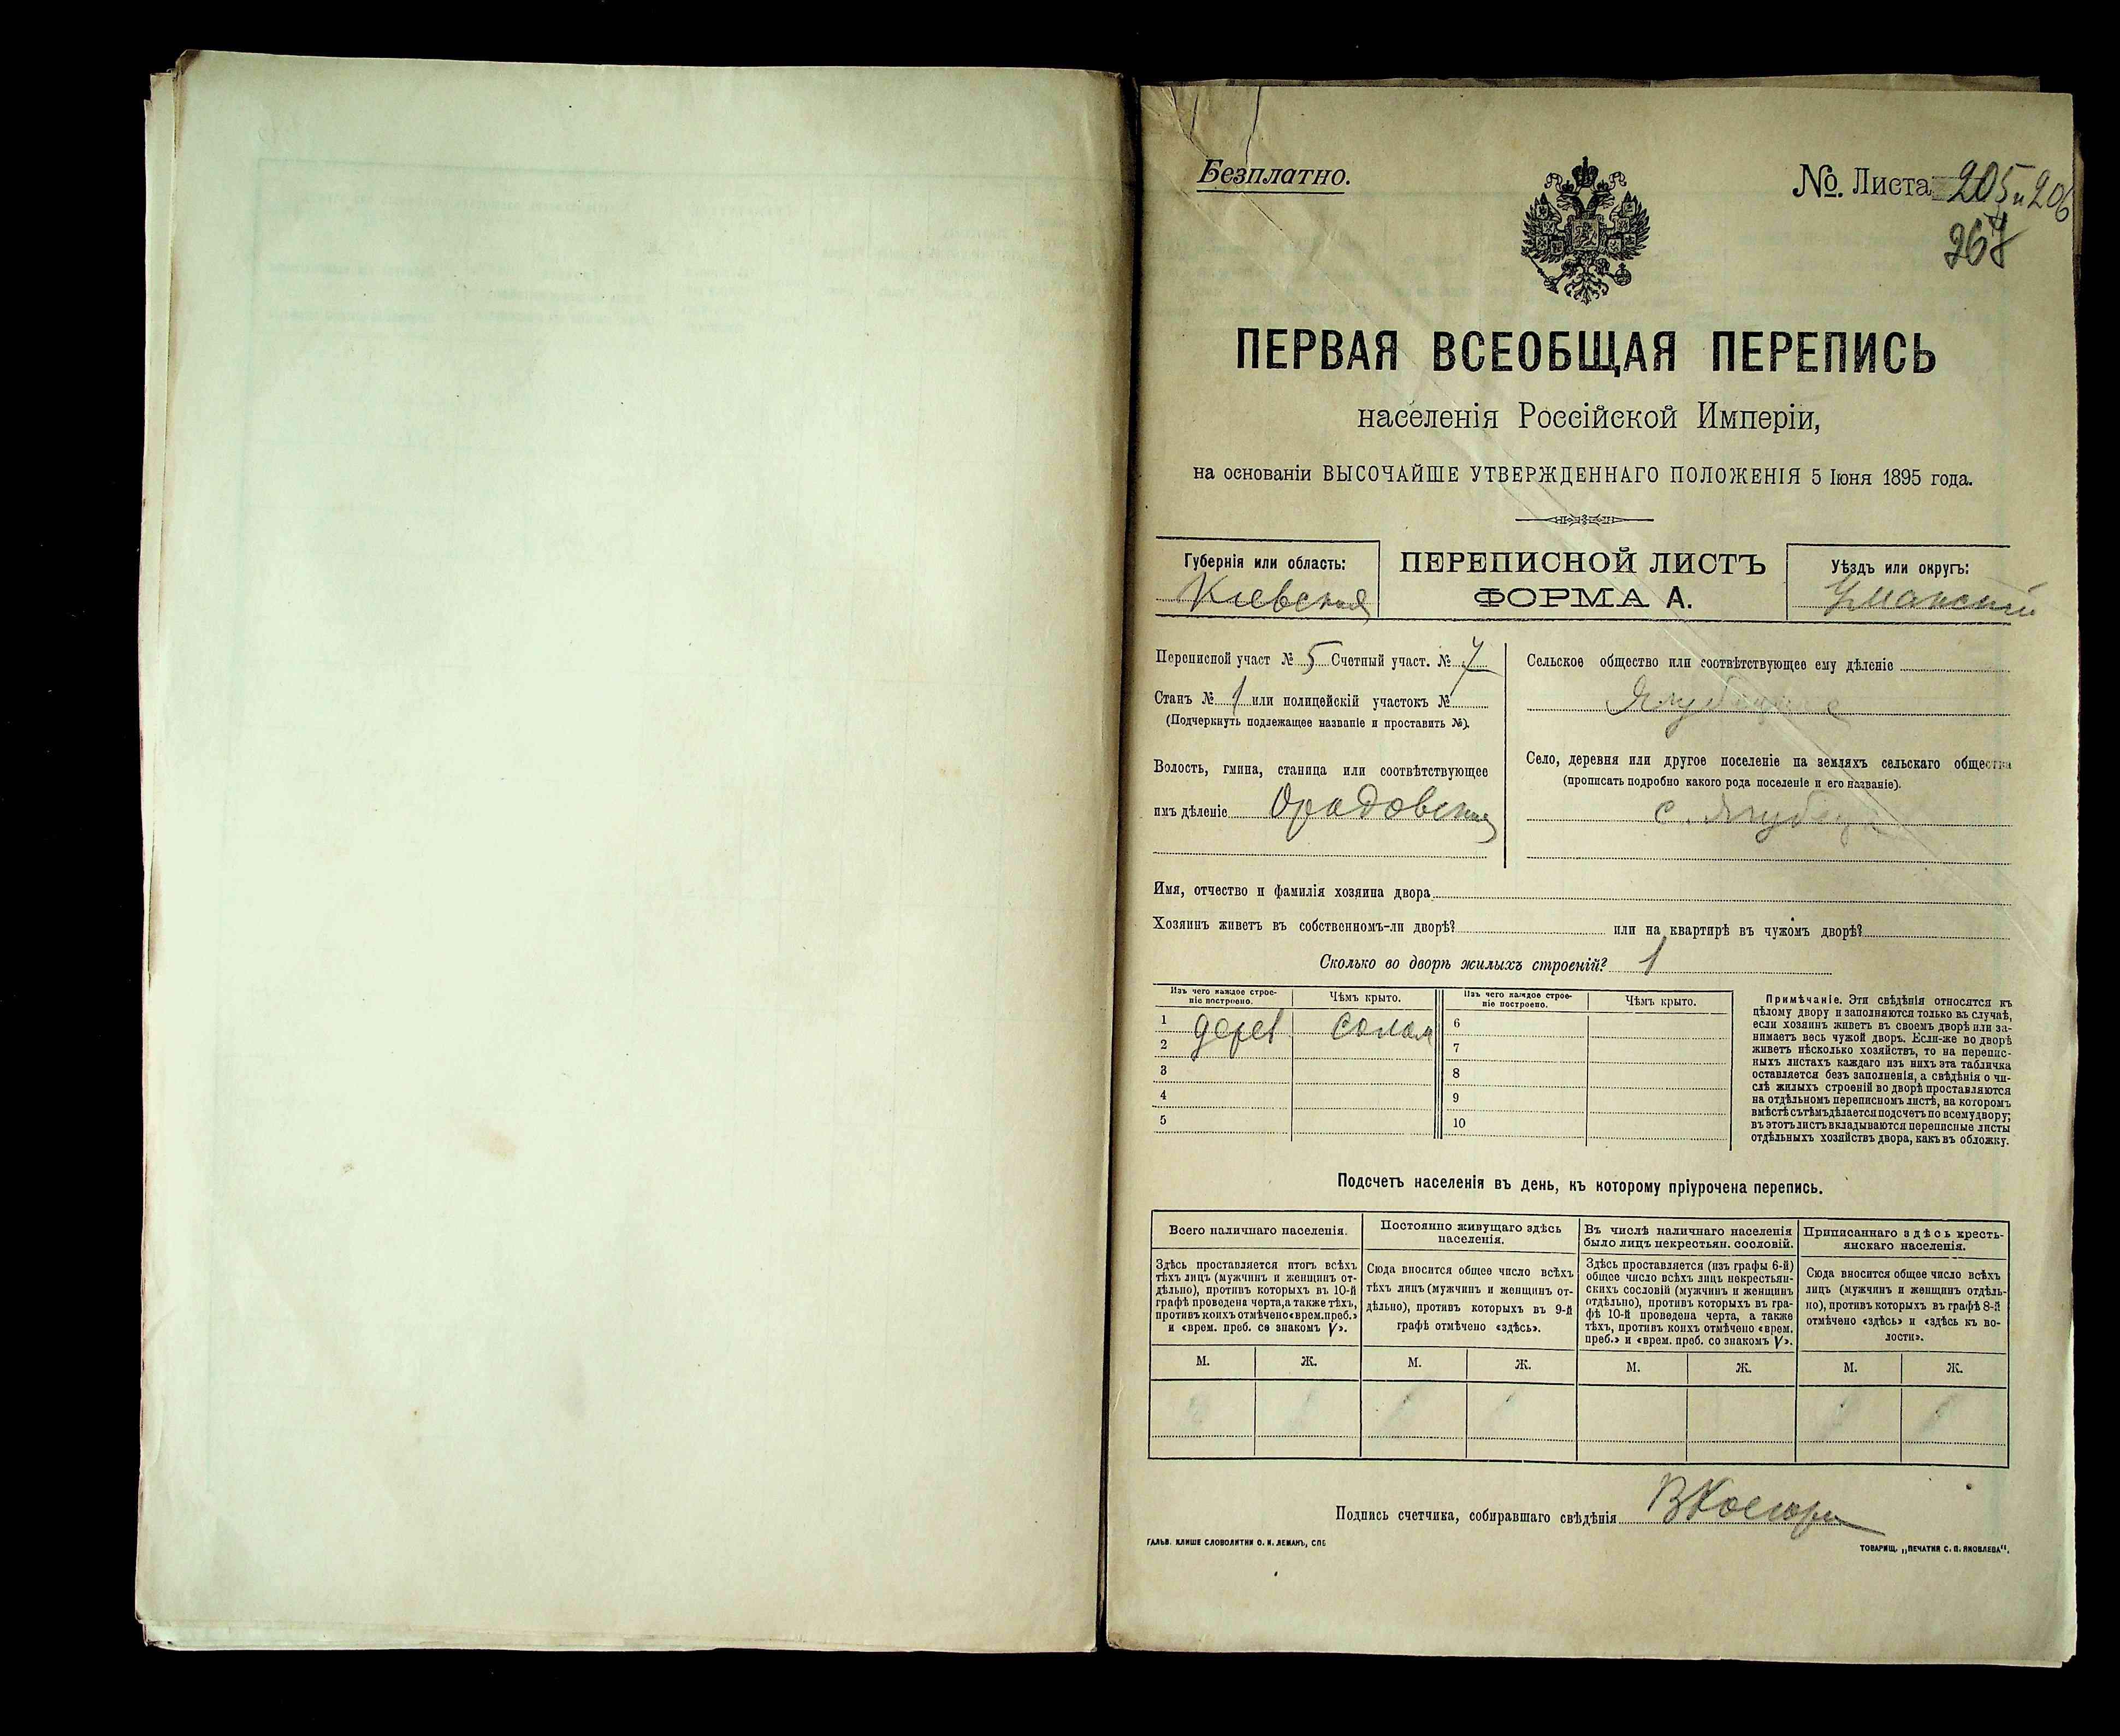 Безплатно.
№ Листа 205 и 206
267
ПЕРВАЯ ВСЕОБЩАЯ ПЕРЕПИСЬ
населенія Россійской Имперіи,
на основаніи ВЫСОЧАЙШЕ УТВЕРЖДЕННАГО ПОЛОЖЕНІЯ 5 Іюня 1895 года.
Губернія или область:
Кіевская
ПЕРЕПИСНОЙ ЛИСТЪ
ФОРМА А.
Уѣздъ или округъ:
Уманскій
Переписной участ № 5 Счетный участ. № 7
Станъ № 1 или полицейскій участокъ №
(Подчеркнуть подлежащее названіе и проставить №).
Волость, гмина, станица или соотвѣтствующее
имъ дѣленіе Орадовская
Сельское общество или соотвѣтствующее ему дѣленіе
Село, деревня или другое поселеніе на земляхъ сельскаго общества
(прописать подробно какого рода поселеніе и его названіе).
с.
Имя, отчество и фамилія хозяина двора
Хозяинъ живетъ въ собственномъ-ли дворѣ? или на квартирѣ въ чужомъ дворѣ?
Сколько во дворѣ жилыхъ строеній? 1
Изъ чего каждое строе-
ніе построено.
Чѣмъ крыто.
Изъ чего каждое строе-
ніе построено.
Чѣмъ крыто.
1 дерев солом 6
2 7
3 8
4 9
5 10
Примѣчаніе. Эти свѣдѣнія относятся къ
цѣлому двору и заполняются только въ случаѣ,
если хозяинъ живетъ въ своемъ дворѣ или за-
нимаетъ весь чужой дворъ. Если-же во дворѣ
живетъ нѣсколько хозяйствъ, то на перепис-
ныхъ листахъ каждаго изъ нихъ эта табличка
оставляется безъ заполненія, а свѣдѣнія о чи-
слѣ жилыхъ строеній во дворѣ проставляются
на отдѣльномъ переписномъ листѣ, на которомъ
вмѣстѣ съ тѣмъ дѣлается подсчетъ по всему двору;
въ этотъ листъ вкладываются переписные листы
отдѣльныхъ хозяйствъ двора, какъ въ обложку.
Подсчетъ населенія въ день, къ которому пріурочена перепись.
Всего наличнаго населенія.
Здѣсь проставляется итогъ всѣхъ
тѣхъ лицъ (мужчинъ и женщинъ от-
дѣльно), противъ которыхъ въ 10-й
графѣ проведена черта, а также тѣхъ,
противъ коихъ отмѣчено «врем. преб.»
и «врем. преб. со знакомъ V».
Постоянно живущаго здѣсь
населенія.
Сюда вносится общее число всѣхъ
тѣхъ лицъ (мужчинъ и женщинъ от-
дѣльно), противъ которыхъ въ 9-й
графѣ отмѣчено «здѣсь».
Въ числѣ наличнаго населенія
было лицъ некрестьян. сословій.
Здѣсь проставляется (изъ графы 6-й)
общее число всѣхъ лицъ некрестьян-
скихъ сословій (мужчинъ и женщинъ
отдѣльно), противъ которыхъ въ гра-
фѣ 10-й проведена черта, а также
тѣхъ, противъ коихъ отмѣчено «врем.
преб.» и «врем. преб. со знакомъ V».
Приписаннаго здѣсь кресть-
янскаго населенія.
Сюда вносится общее число всѣхъ
лицъ (мужчинъ и женщинъ отдѣль-
но), противъ которыхъ въ графѣ 8-й
отмѣчено «здѣсь» и «здѣсь къ во-
лости».
М. Ж. М. Ж. М. Ж. М. Ж.
Подпись счетчика, собиравшаго свѣдѣнія
ГАЛЬВ. КЛИШЕ СЛОВОЛИТНИ О. И. ЛЕМАНЪ, СПБ
ТОВАРИЩ. „ПЕЧАТНЯ С. П. ЯКОВЛЕВА".